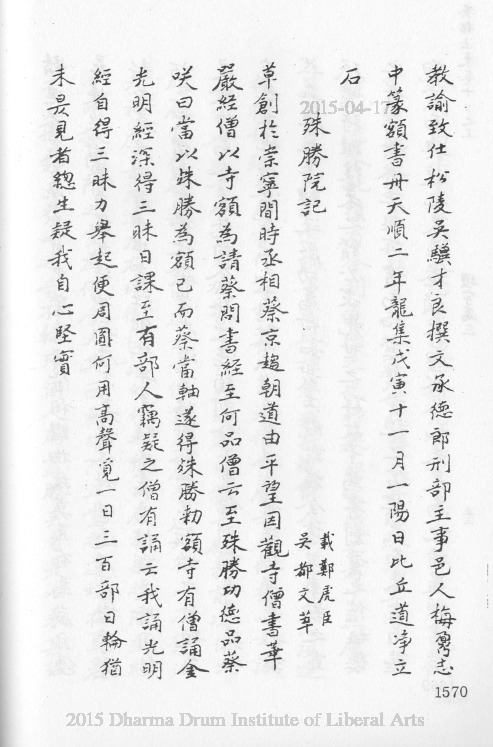 教諭致仕松陵吳驥才良撰文承德郎刑部主事邑人梅勇志
中篆額書丹天順二年龍集戊寅十一月一陽日比丘道淨立
石
殊勝院記
載鄭虎臣
吳都文草
草創於崇寧間時丞相蔡京趨朝道由平望因觀寺僧書華
嚴經僧以寺額為請蔡問書經至何品僧云至殊勝功德品蔡
咲曰當以殊勝為額已而蔡當軸遂得殊勝勅額寺有僧誦金
光明經深得三昧日課至有部人竊疑之僧有誦云我誦光明
經自得三昧力舉起便周圓何用高聲覓一日三百部日輪猶
未昃見者總生疑我自心堅實
1570
2015-04-17
2015 Dharma Drum Institute of Liberal Arts